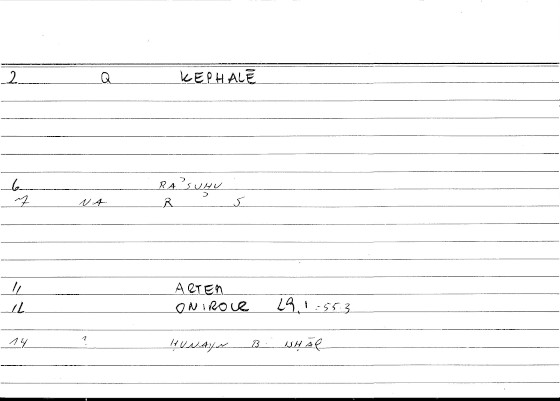 2 Q KEPHALĒ
6 RAʾSUHU
7 NA R ʾ S
11 ARTEM
12 ONIROCR 29,1:553
14 ? ḤUNAYN B.